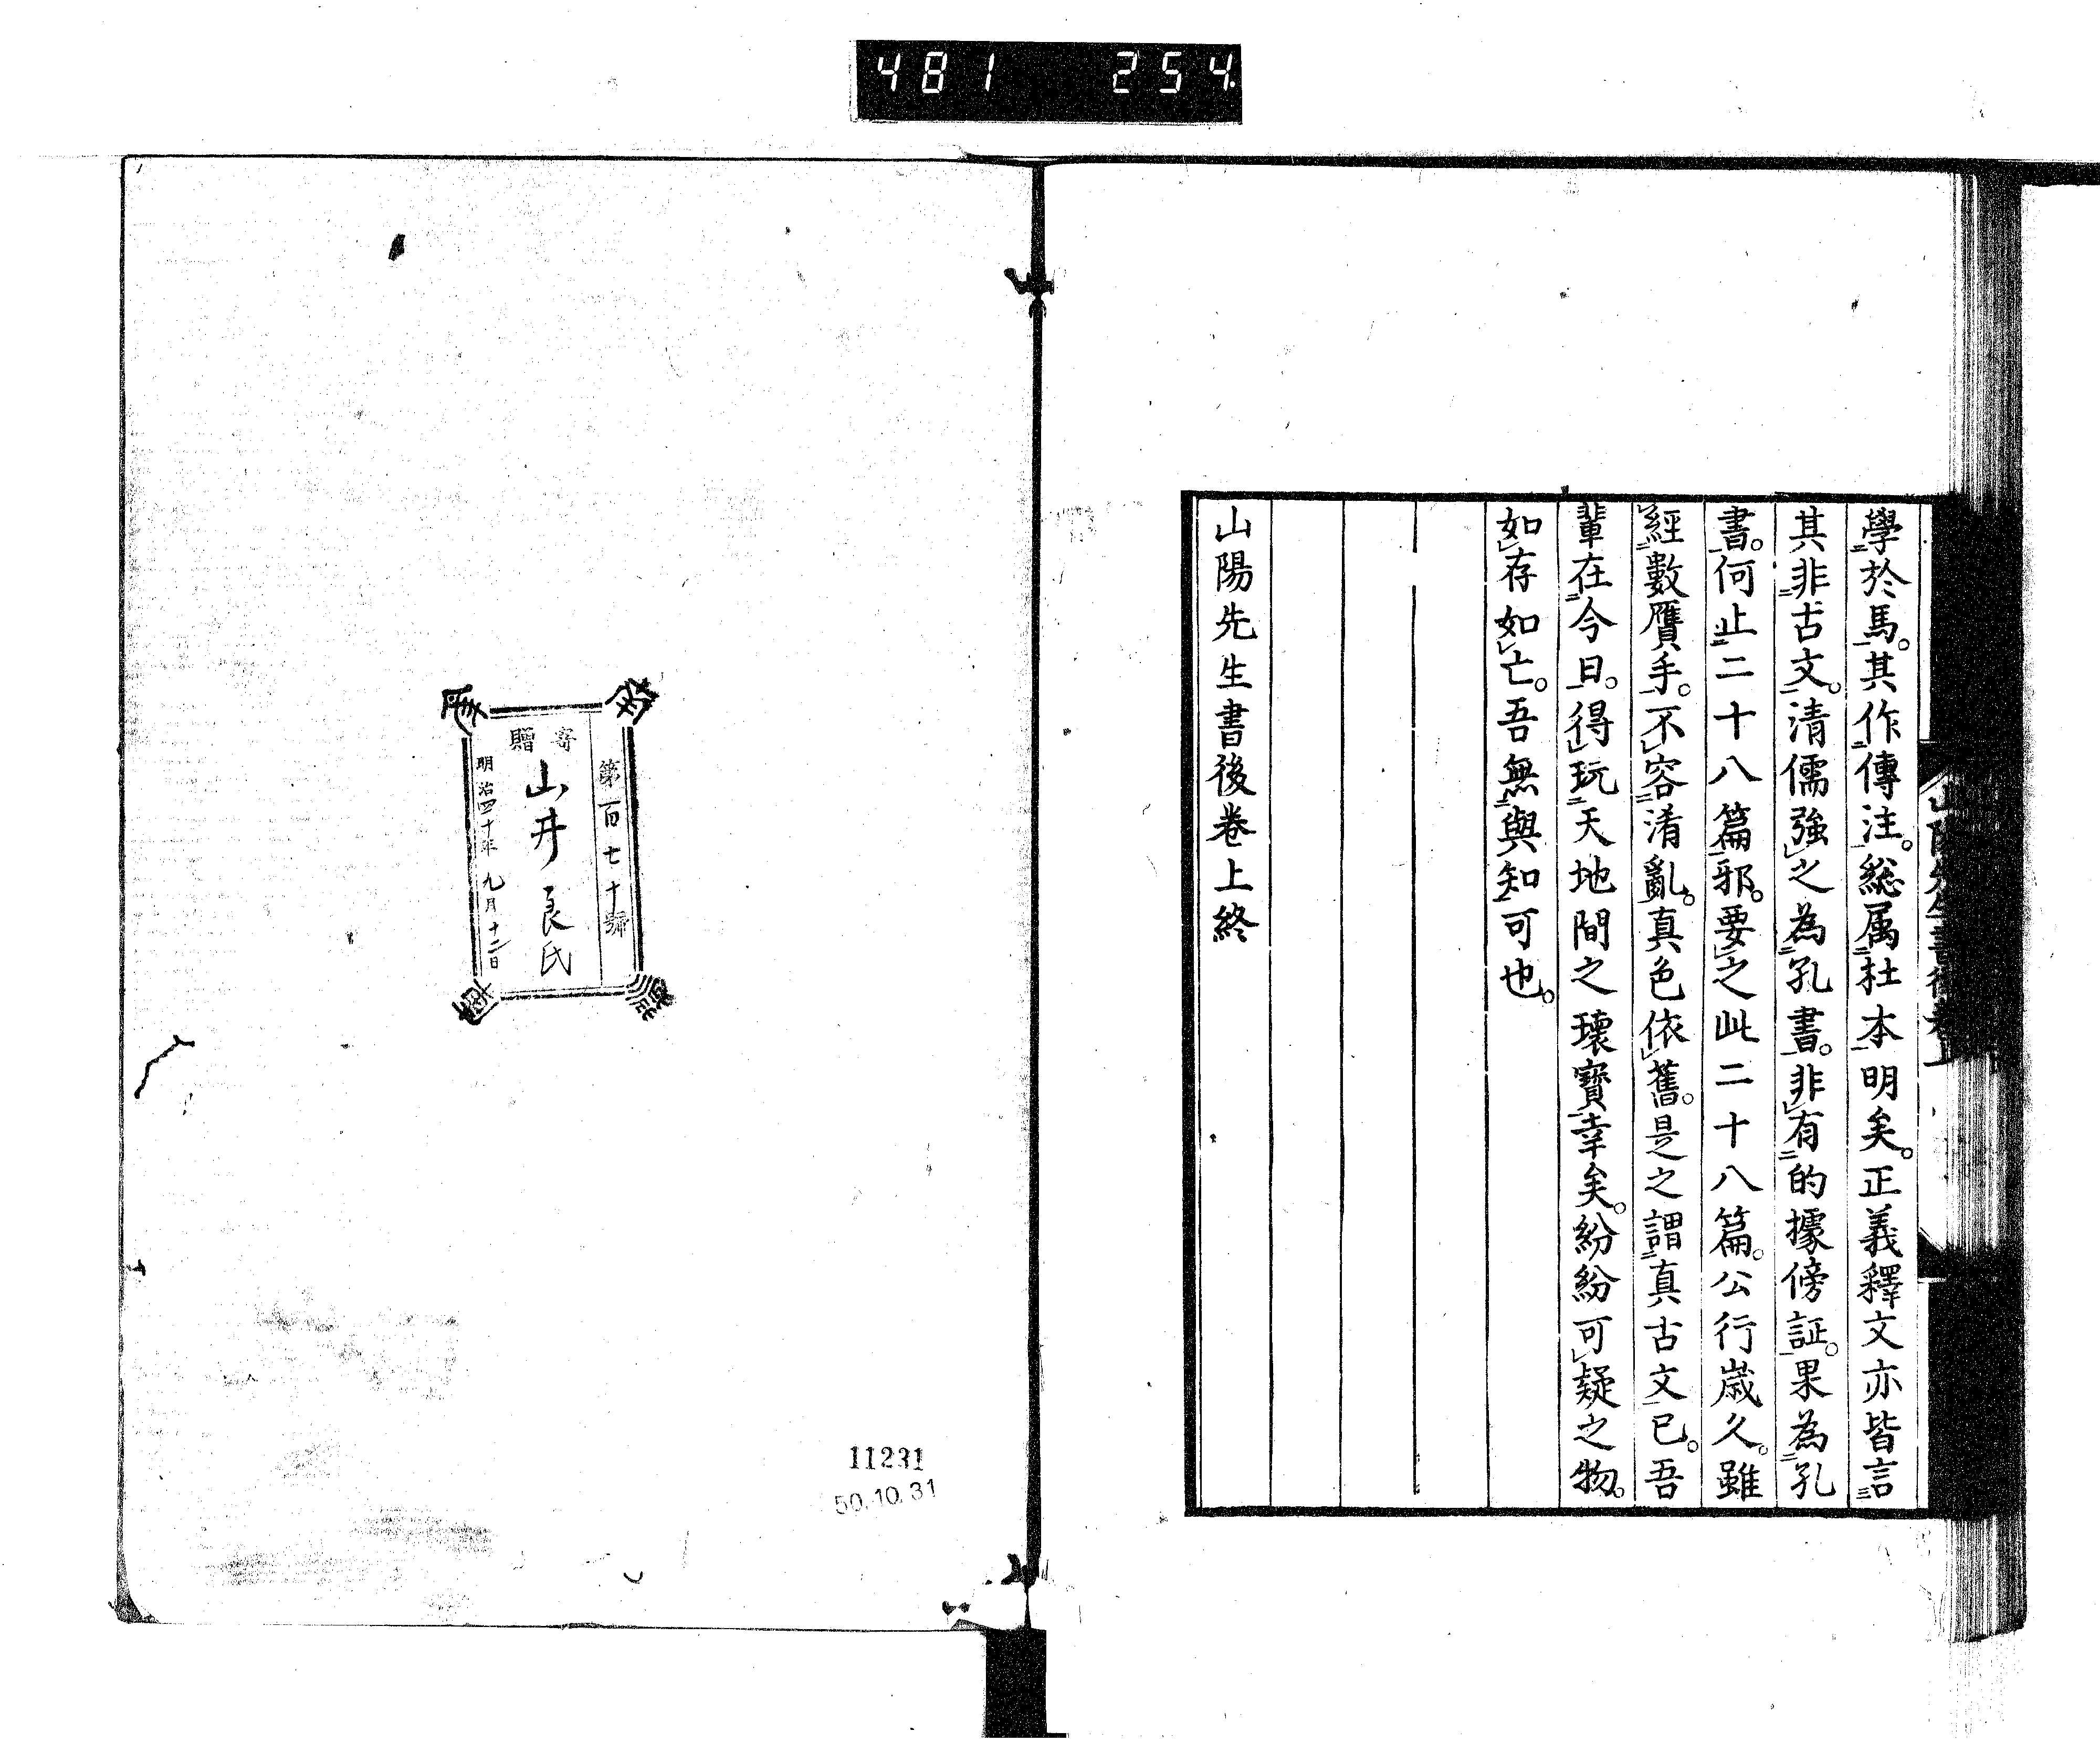 481 254
學於馬。其作傳注。総属杜本明矣。正義釋文亦皆言
其非古文。清儒強之為孔書。非有的據傍証。果為孔
書。何止二十八篇邪。要之此二十八篇。公行歳久。雖
經數贋手。不容淆亂。真色依舊。是之謂真古文已。吾
輩在今日。得玩天地間之瓌寶幸矣。紛紛可疑之物。
如存如亡。吾無與知可也。
山陽先生書後卷上終
第百七十號
寄贈
山井良氏
明治四十年九月十二日
11231
50.10.31